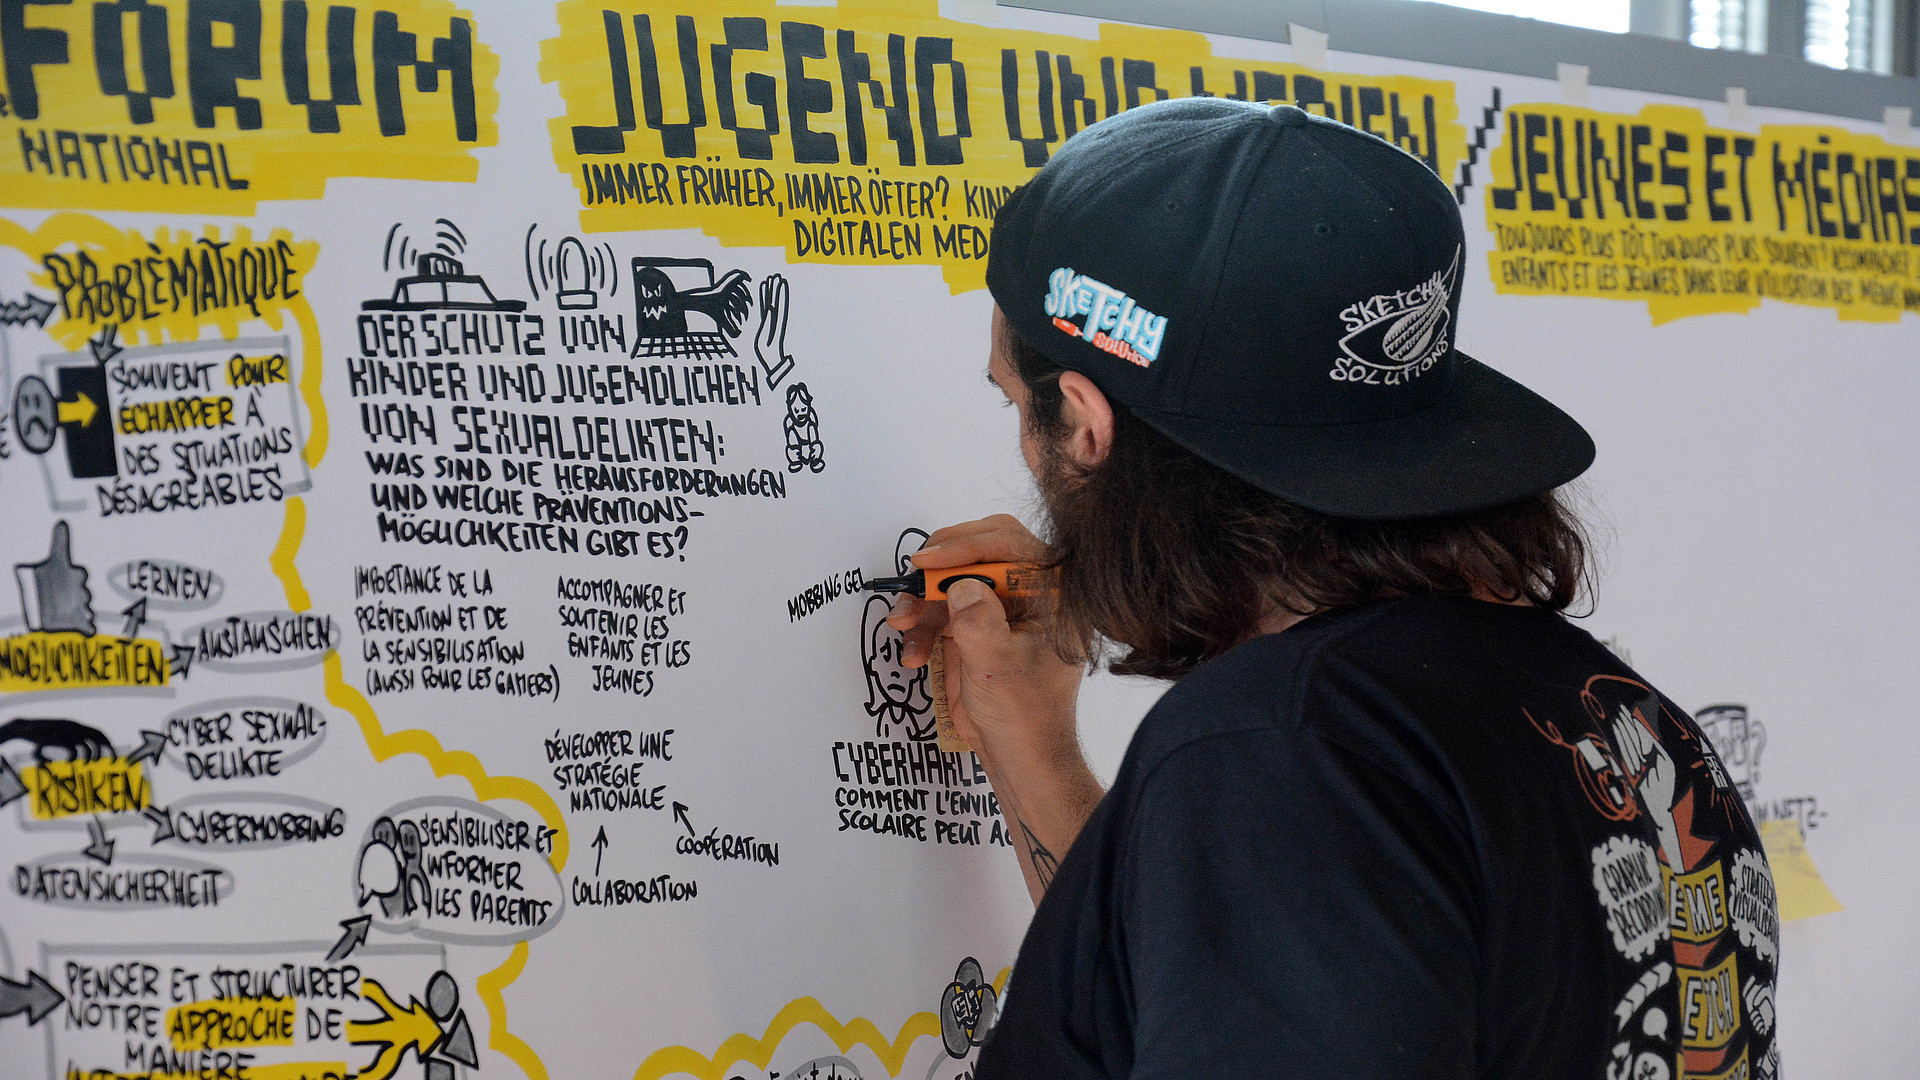 FORUM
NATIONAL
JUGEND UND MEDIEN / JEUNES ET MÉDIAS
IMMER FRÜHER, IMMER ÖFTER?
DIGITALEN
TOUJOURS PLUS TÔT, TOUJOURS PLUS SOUVENT?
ENFANTS ET LES JEUNES DANS LEUR UTILISATION DES
PROBLÈMATIQUE
SOUVENT POUR
ÉCHAPPER À
DES SITUATIONS
DÉSAGRÉABLES
DER SCHUTZ VON
KINDER UND JUGENDLICHEN
VON SEXUALDELIKTEN:
WAS SIND DIE HERAUSFORDERUNGEN
UND WELCHE PRÄVENTIONS-
MÖGLICHKEITEN GIBT ES?
LERNEN
AUSTAUSCHEN
MÖGLICHKEITEN
CYBER SEXUAL-
DELIKTE
RISIKEN
CYBERMOBBING
DATENSICHERHEIT
IMPORTANCE DE LA
PRÉVENTION ET DE
LA SENSIBILISATION
(AUSSI POUR LES GAMERS)
ACCOMPAGNER ET
SOUTENIR LES
ENFANTS ET LES
JEUNES
DÉVELOPPER UNE
STRATÉGIE
NATIONALE
COOPÉRATION
COLLABORATION
SENSIBILISER ET
INFORMER
LES PARENTS
PENSER ET STRUCTURER
NOTRE APPROCHE DE
MANIÈRE
MOBBING GEL
CYBERHARLE
COMMENT L'ENVIR
SCOLAIRE PEUT
SKETCHY
SOLUTION
SKETCHY
SOLUTIONS
GRAPHIC
RECORDING